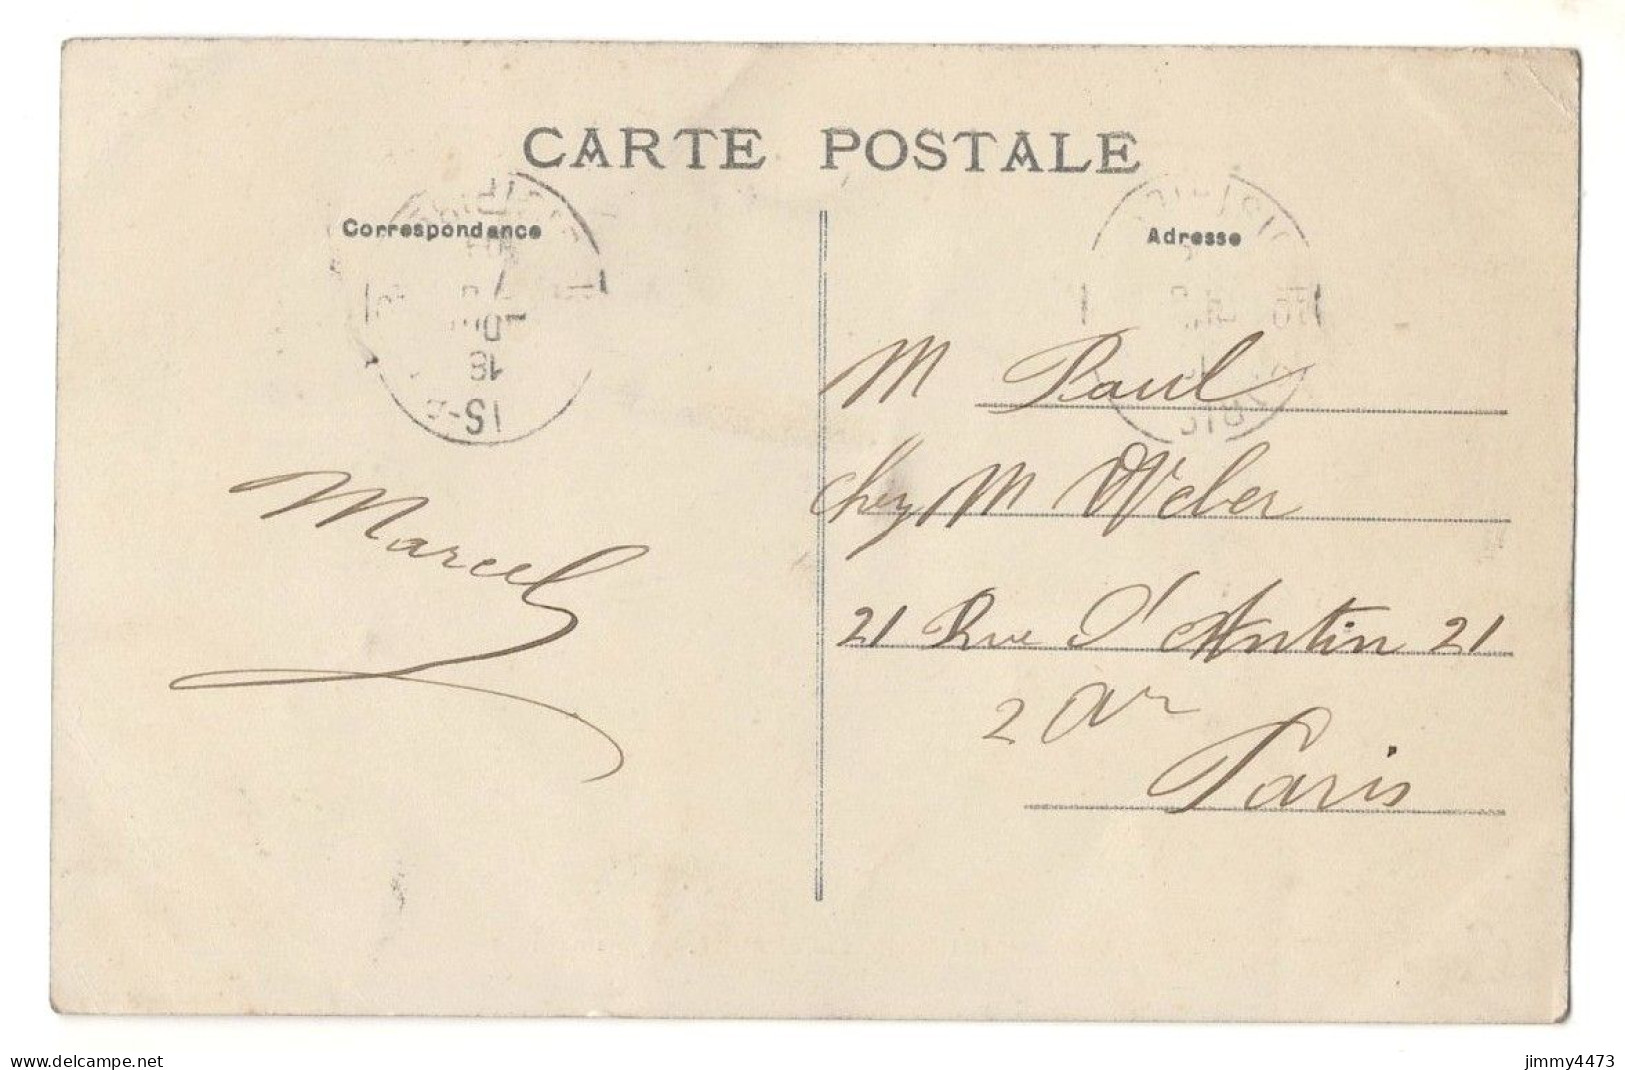 CARTE POSTALE
Correspondance
Adresse
M Paul
chez M Weber
21 Rue d'Antin 21
2 ar
Paris
Marcel
delcampe.net
jimmy4473